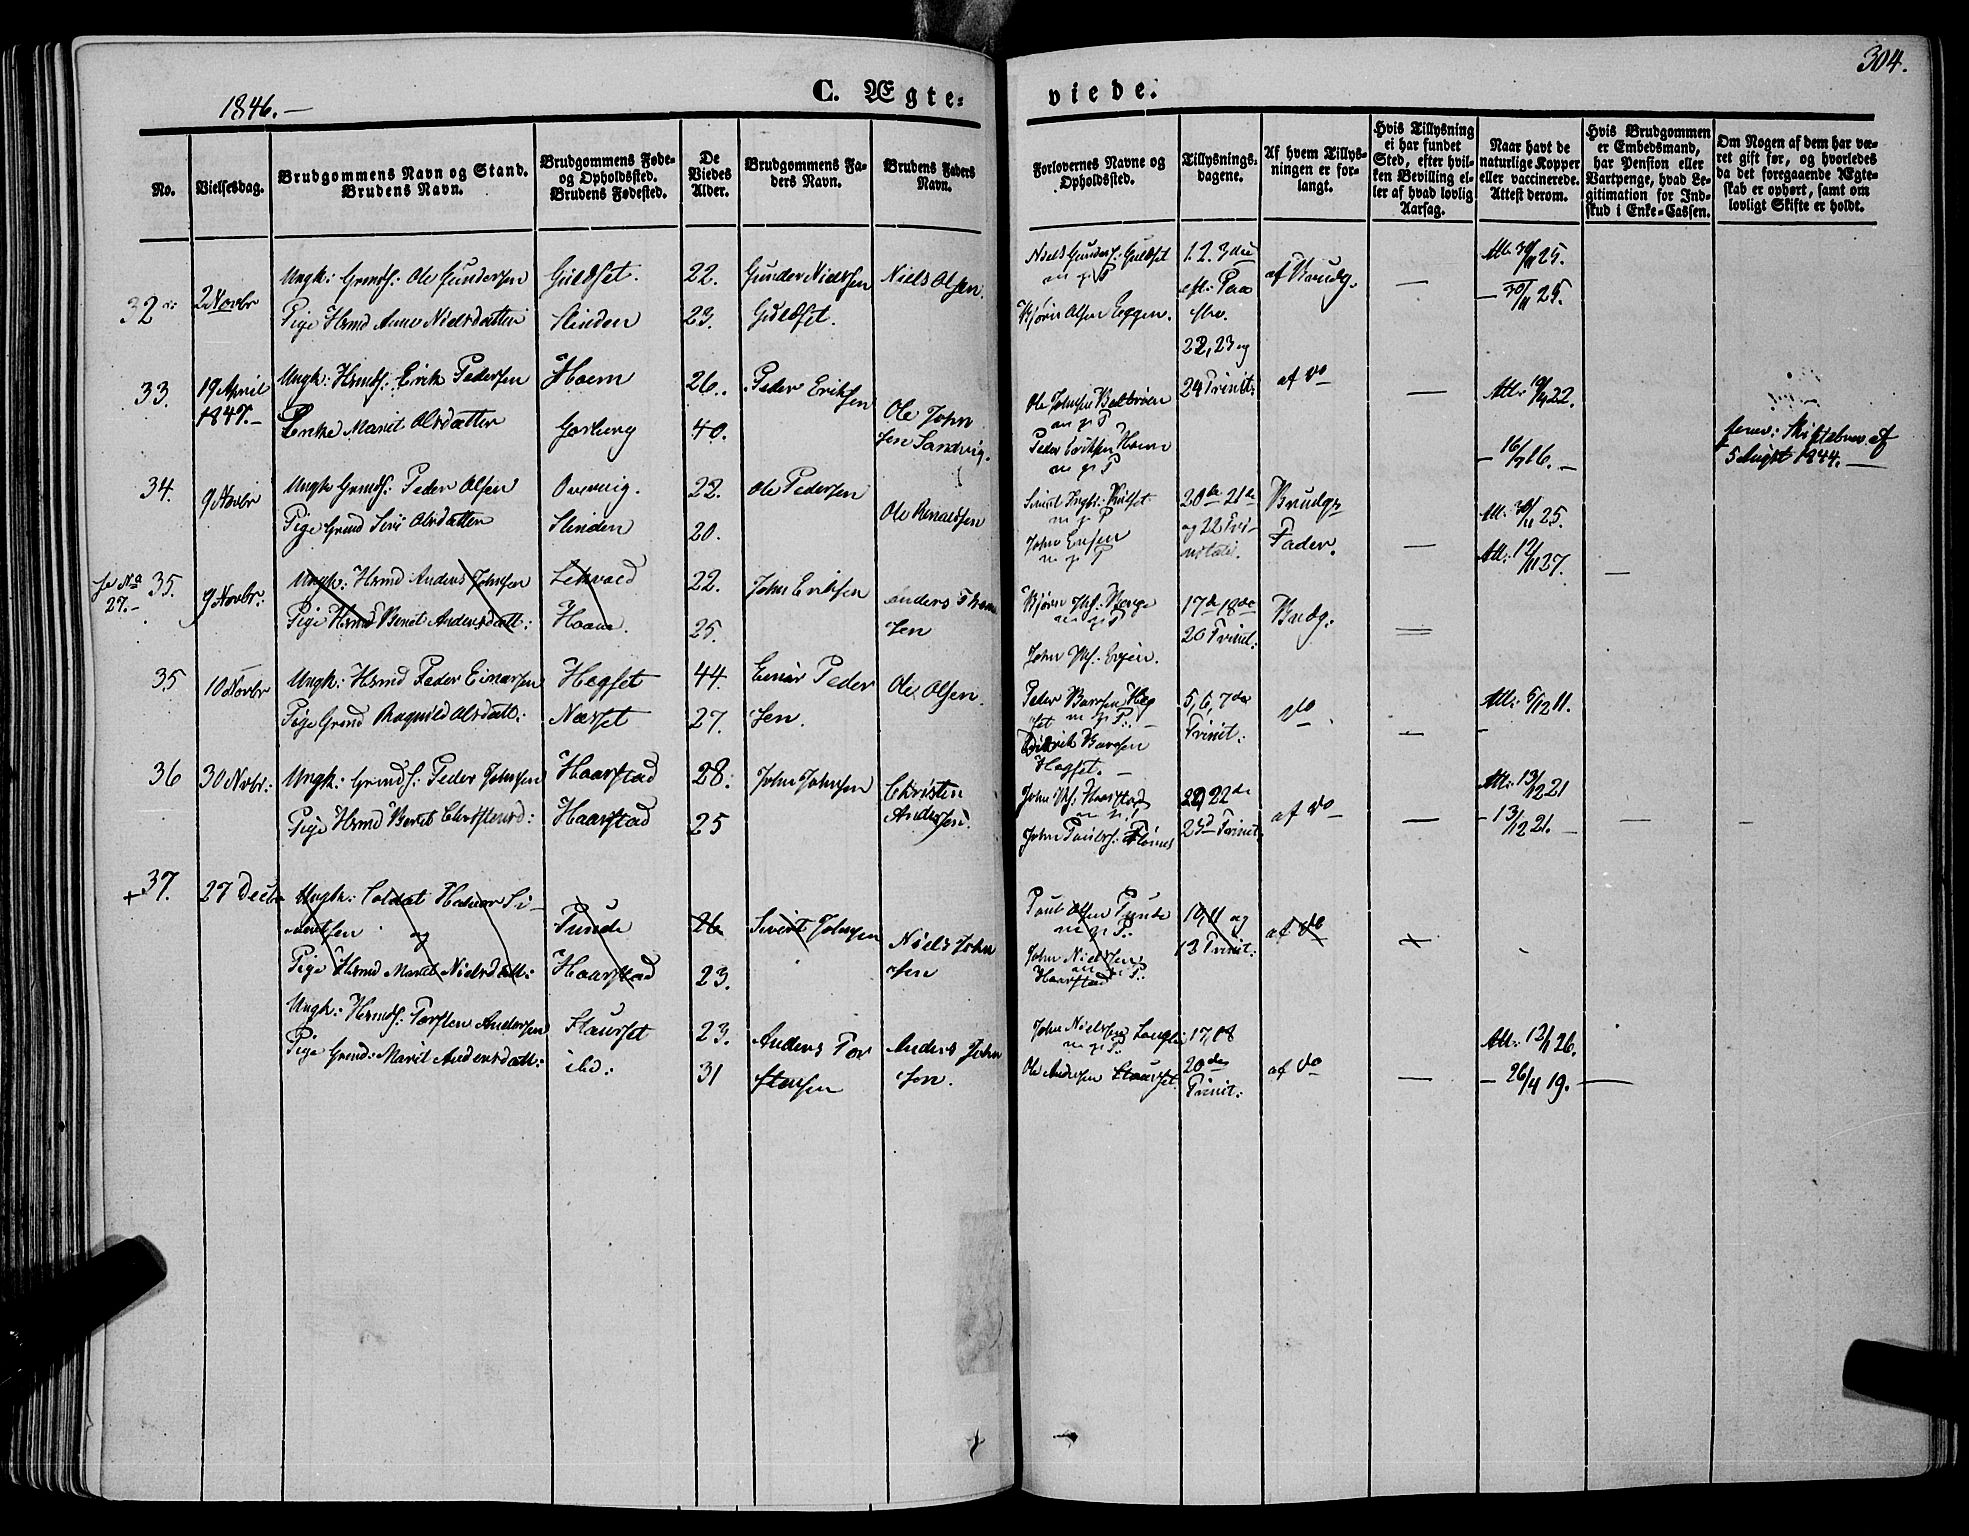 304.
1846.-
C. Ægte-
viede.
No.
Vielsesdag.
Brudgommens Navn og Stand.
Brudens Navn.
Brudgommens Føde-
og Opholdssted.
Brudens Fødested.
De
Viedes
Alder.
Brudgommens Fa-
ders Navn.
Brudens Faders
Navn.
Forlovernes Navne og
Opholdssted.
Tillysnings-
dagene.
Af hvem Tillys-
ningen er for-
langt.
Hvis Tillysning
ei har fundet
Sted, efter hvil-
ken Bevilling el-
ler af hvad lovlig
Aarsag.
Naar havt de
naturlige Kopper
eller vaccinerede.
Attest derom.
Hvis Brudgommen
er Embedsmand,
har Pension eller
Vartpenge, hvad Le-
gitimation for Ind-
skud i Enke-Cassen.
Om Nogen af dem har væ-
ret gift før, og hvorledes
da det foregaaende Ægte-
skab er ophørt, samt om
lovligt Skifte er holdt.
32
2 Novbr
Ungk: Grmdf: Ole Gundersen
Pige Hsmd Anne Nielsdatter
Guldset.
Slinden
22.
23.
Gunder Nielsen
Guldset.
Niels Olsen.
Niels Gunders: Guldset
m g P
Bjørn Olsen Eggen.
1. 2. 3die
af Brudg.
—
Att: 30/11 25.
— 30/11 25.
33.
19 April
1847.-
Ungk: Hsmdf: Erik Pedersen
Enke Marit Olsdatter
Hoem
26.
40.
Peder Eriksen
Ole John
sen Sandvig.
Ole Johnsen
m g P
Peder Eriksen Hoem
m g P
22, 23 og
24 Trinit:
af do
—
Att: 22.
— 16.—
Skiftebrev af
5 August 1844.—
34.
9 Novbr
Ungk Grmdf: Peder Olsen
Pige Grmd Siri Olsdatter
Overvig.
Slinden
22.
20.
Ole Pedersen
Ole
m g P
John Ersen
m g P
20de 21de
og 22 Tri-
nitatis.
Brudgs
Fader.
—
Att: 30/11 25.
Att: 12/11 27.
—
se No
27.-
35.
9 Novbr:
Ungk: Hsmd Anders Johnsen
Pige Hsmd Beret Andersdatt:
Haave.
22.
25.
John Eriksen
Anders
sen
Bjørn
m g P
John
17de 18de
20 Trinit:
Brdg:
=
35
10 Novbr
Ungk: Hsmd Peder Einarsen
Pige Grmd Ragnild Olsdatt:
Hegset
Næsset
44.
27.
Einar Peder
sen.
Ole Olsen.
Peder Baarsen Heg
set m g P: —
Baarsen
Hegset. —
5, 6, 7de
Trinit:
do
—
Att: 5/12 11.
—
36
30 Nvbr:
Ungk: Grmdf: Peder Johnsen
Pige Hsmd Beret Christensd:
Haarstad
Haarstad
28.
25
John Johnsen
Christen
Andersen.
John Haarstad
m g P
John Paulsf:
22de
23d Trinit:
af do
—
Att: 13/12 21
— 13/12 21. —
—
—
37.
+
27 Decbr
Ungk: Soldat Halvor Si-
vertsen og
Pige Hsmd Marit Nielsdatt:
Tunde
Haarstad
26
23.
Sivert Johnsen
Niels John
sen
Paul Olsen Tunde
m g P:
John Nielsen
Haarstad m g P:
10, 11 og
13 Trinit:
af do
Ungk: Hsmdf: Torsten Andersen
Pige Grmd: Marit Andersdatt:
Staurset
ibd:
23.
31
Anders Tor
stensen
Anders John
sen.
John Nielsen
m g P.
Ole Andersen Staurset.
17, 18
20de
Trinit:
af do
—
Att: 12/1 26.
— 26/4 19.
—